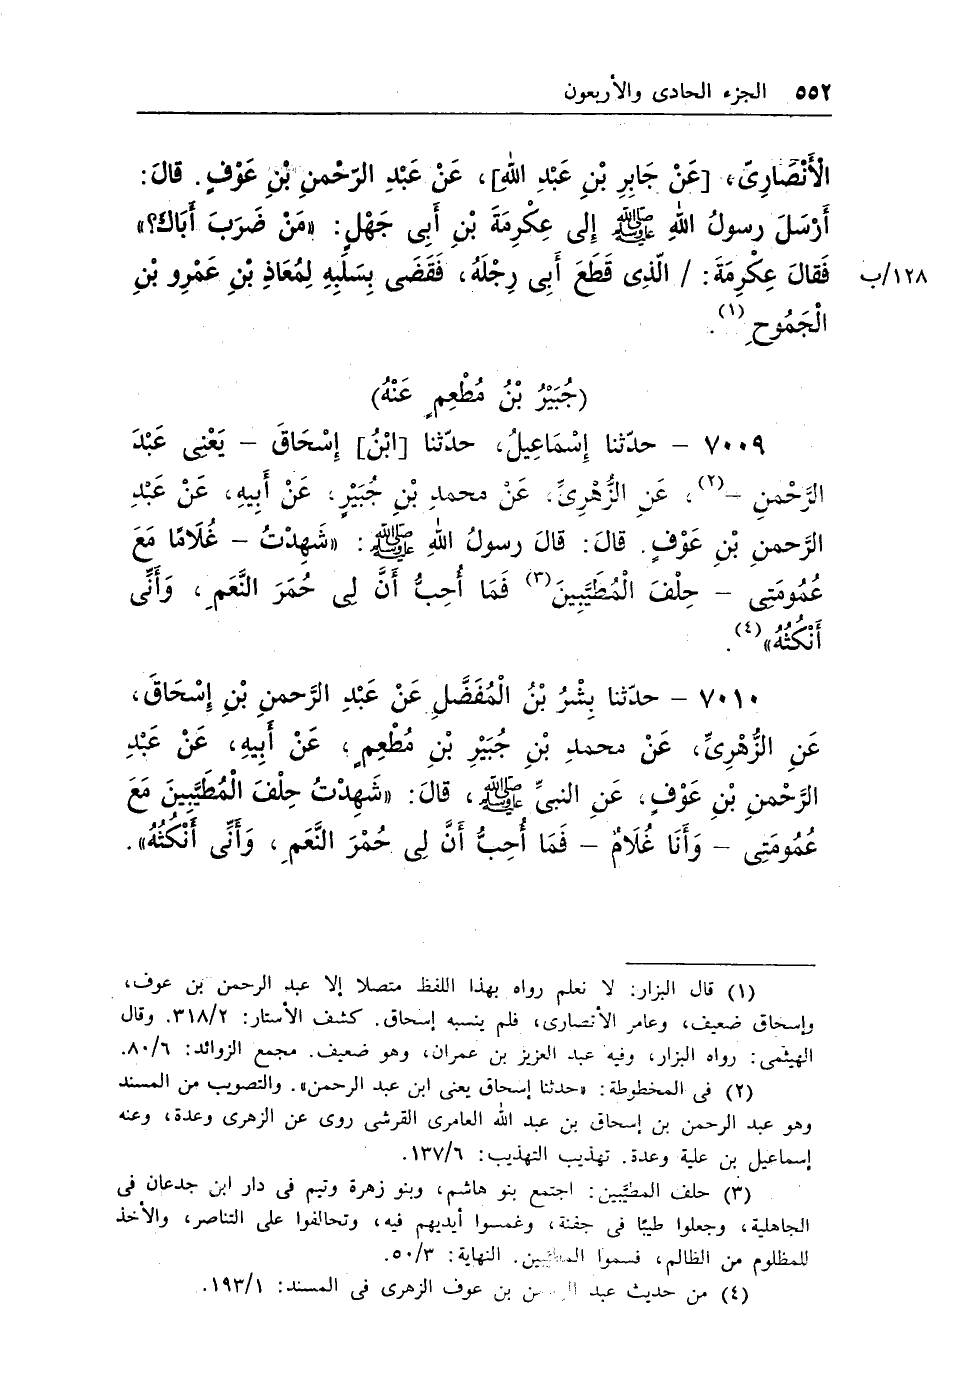 ٥٥٢ الجزء الحادى والأربعون
الْأَنْصَارِىِّ، [عَنْ جَابِرِ بْنِ عَبْدِ اللهِ]، عَنْ عَبْدِ الرّحْمنِ بْنِ عَوْفٍ. قالَ:
أَرْسَلَ رسولُ اللهِ ﷺ إلى عِكْرِمَةَ بْنِ أَبِى جَهْلٍ: «مَنْ ضَرَبَ أَبَاكَ؟»
فَقالَ عِكْرِمَةَ: / الّذِى قَطَعَ أَبِى رِجْلَهُ، فَقَضَى بِسَلَبِهِ لِمُعَاذِ بْنِ عَمْرِو بْنِ ١٢٨/ب
الْجَمُوحِ(١).
(جُبَيْرُ بْنُ مُطْعِمٍ عَنْهُ)
٧٠٠٩ - حدّثنا إِسْمَاعِيلُ، حدّثنا [ابْنُ] إِسْحَاقَ - يَعْنِى عَبْدَ
الرَّحْمنِ -(٢)، عَنِ الزُّهْرِىِّ، عَنْ محمدِ بْنِ جُبَيْرٍ، عَنْ أَبِيهِ، عَنْ عَبْدِ
الرَّحمنِ بْنِ عَوْفٍ. قالَ: قالَ رسولُ اللهِ ﷺ: «شَهِدْتُ - غُلَامًا مَعَ
عُمُومَتِى - حِلْفَ الْمُطَيَّبِينَ(٣) فَمَا أُحِبُّ أَنَّ لِى حُمَرَ النَّعَمِ، وَأَنِّى
أَنْكُثُهُ»(٤).
٧٠١٠ - حدّثنا بِشْرُ بْنُ الْمُفَضَّلِ عَنْ عَبْدِ الرَّحمنِ بْنِ إِسْحَاقَ،
عَنِ الزُّهْرِىِّ، عَنْ محمدِ بْنِ جُبَيْرِ بْنِ مُطْعِمٍ، عَنْ أَبِيهِ، عَنْ عَبْدِ
الرَّحْمنِ بْنِ عَوْفٍ، عَنِ النبىِّ ﷺ، قالَ: «شَهِدْتُ حِلْفَ الْمُطَيَّبِينَ مَعَ
عُمُومَتِى - وَأَنَا غُلَامٌ - فَمَا أُحِبُّ أَنَّ لِى حُمْرَ النَّعَمِ، وَأَنِّى أَنْكُثُهُ».
(١) قال البزار: لا نعلم رواه بهذا اللفظ متصلا إلا عبد الرحمن بن عوف،
وإسحاق ضعيف، وعامر الأنصارى، فلم ينسبه إسحاق. كشف الأستار: ٣١٨/٢. وقال
الهيثمى: رواه البزار، وفيه عبد العزيز بن عمران، وهو ضعيف. مجمع الزوائد: ٨٠/٦.
(٢) فى المخطوطة: «حدثنا إسحاق يعنى ابن عبد الرحمن». والتصويب من المسند
وهو عبد الرحمن بن إسحاق بن عبد الله العامرى القرشى روى عن الزهرى وعدة، وعنه
إسماعيل بن علية وعدة. تهذيب التهذيب: ١٣٧/٦.
(٣) حلف المطيَّبين: اجتمع بنو هاشم، وبنو زهرة وتيم فى دار ابن جدعان فى
الجاهلية، وجعلوا طيبًا فى جفنة، وغمسوا أيديهم فيه، وتحالفوا على التناصر، والأخذ
للمظلوم من الظالم، فسموا المطيَّبين. النهاية: ٥٠/٣.
(٤) من حديث عبد الرحمن بن عوف الزهرى فى المسند: ١٩٣/١.